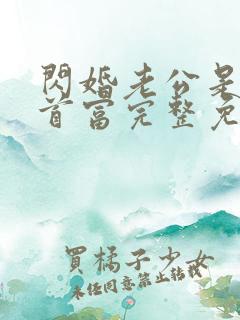 閃婚老公是
首富完整免
買橘子少女
未任同意禁止轉載